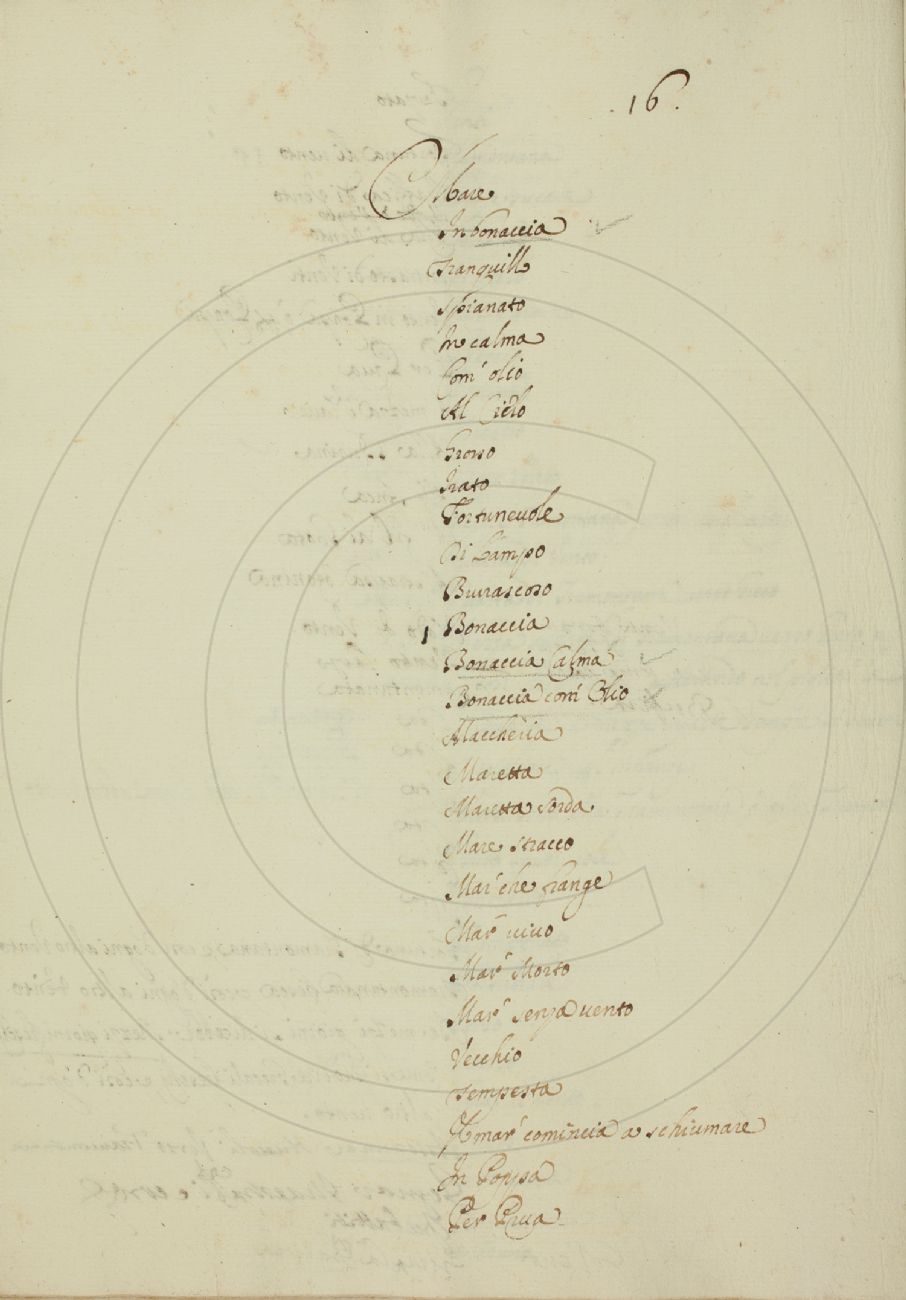 .16.
Mare
In bonaccia
Tranquill
Spianato
In calma
Com' olio
Al Cielo
Grosso
Irato
Fortuneuole
Di Lampo
Burrascoso
1 Bonaccia
Bonaccia Calma
Bonaccia com' Olio
Maccheria
Maretta
Maretta sorda
Mare stracco
Mar' che frange
Mar' uiuo
Mar' Morto
Mar' senza uento
Vecchio
Tempesta
Il mar' comincia a schiumare
In Poppa
Per Prua